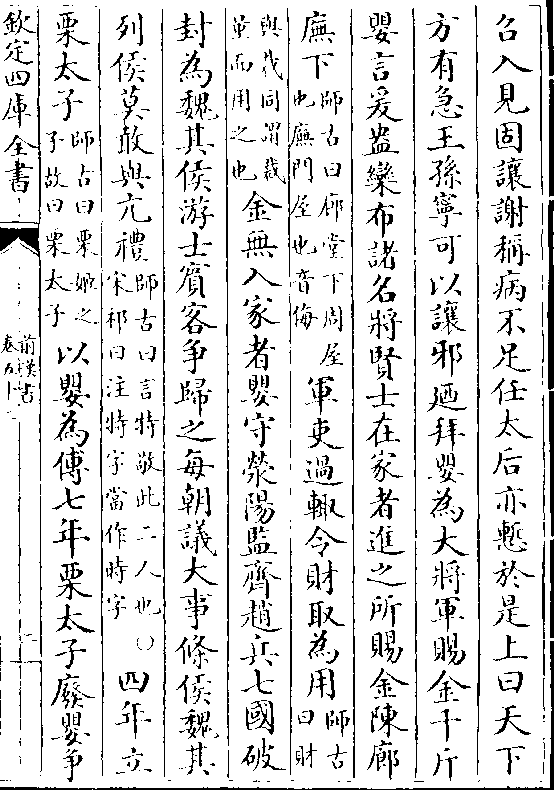 召入見固讓謝稱病不足任太后亦慙於是上曰天下
方有急王孫寧可以讓邪廼拜嬰為大將軍賜金千斤
嬰言爰盎欒布諸名將賢士在家者進之所賜金陳廊
廡下師古曰廊堂下周屋也廡門屋也音侮軍吏過輙令財取為用師古曰財
與裁同謂裁量而用之也金無入家者嬰守滎陽監齊趙兵七國破
封為魏其侯游士賓客爭歸之每朝議大事條侯魏其
列侯莫敢與亢禮師古曰言特敬此二人也○宋祁曰注特字當作時字四年立
栗太子師古曰栗姬之子故曰栗太子以嬰為傅七年栗太子廢嬰爭
欽定四庫全書
前漢書
卷五十二